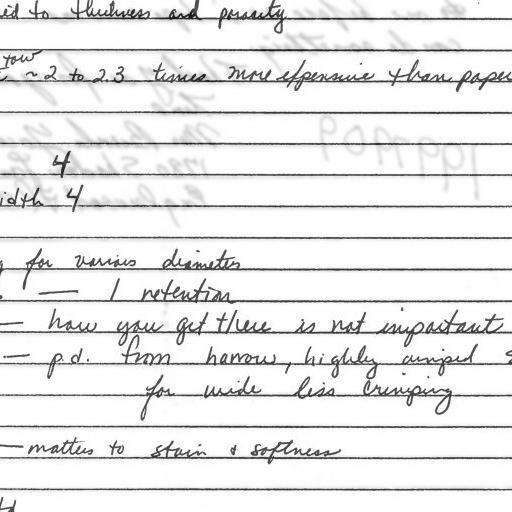 ed to thickness and porosity
tow
~ 2 to 2.3 times more expensive than paper
4
idth 4
for various diameters
— 1 retention
— how you get there is not important
— p.d. from narrow, highly crimped
for wide less crimping
— matters to stain & softness